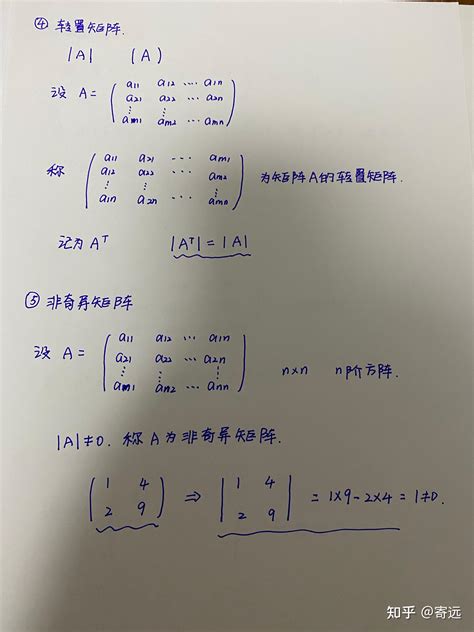 ④ 转置矩阵.
|A| (A)
设 A = ( a11 a12 ⋯ a1n
a21 a22 ⋯ a2n
⋮ ⋮
am1 am2 ⋯ amn )
称 ( a11 a21 ⋯ am1
a12 a22 ⋯ am2
⋮ ⋮
a1n a2n ⋯ amn ) 为矩阵A的转置矩阵.
记为 Aᵀ |Aᵀ| = |A|
⑤ 非奇异矩阵
设 A = ( a11 a12 ⋯ a1n
a21 a22 ⋯ a2n
⋮ ⋮ ⋮
am1 an2 ⋯ ann ) n×n n阶方阵.
|A|≠0. 称 A 为非奇异矩阵.
( 1 4
2 9 ) ⇒ | 1 4
2 9 | = 1×9-2×4 = 1≠0.
知乎 @寄远